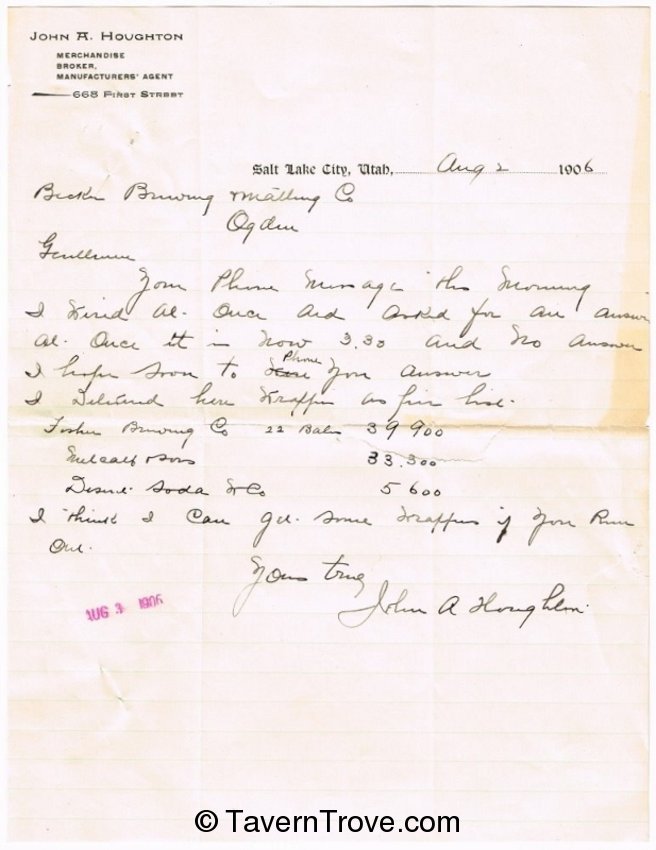 JOHN A. HOUGHTON
MERCHANDISE
BROKER,
MANUFACTURERS' AGENT
668 FIRST STREET
Salt Lake City, Utah, Aug 2 1906
Becker Brewing & Malting Co
Ogden
Gentlemen
Your Phone Message this Morning
I Wired at. Once and asked for an answer
at. Once it is Now 3.30 and No answer
I hope soon to Phone You answer
I Delivered here Wrappers as per list.
Fisher Brewing Co 22 Bales 39 900
Metcalf & Sons 33.300
Desert Soda W Co 5 600
I think I Can get. Some Wrappers if You Run
Out.
Yours truly
John A Houghton
AUG 3 1906
© TavernTrove.com